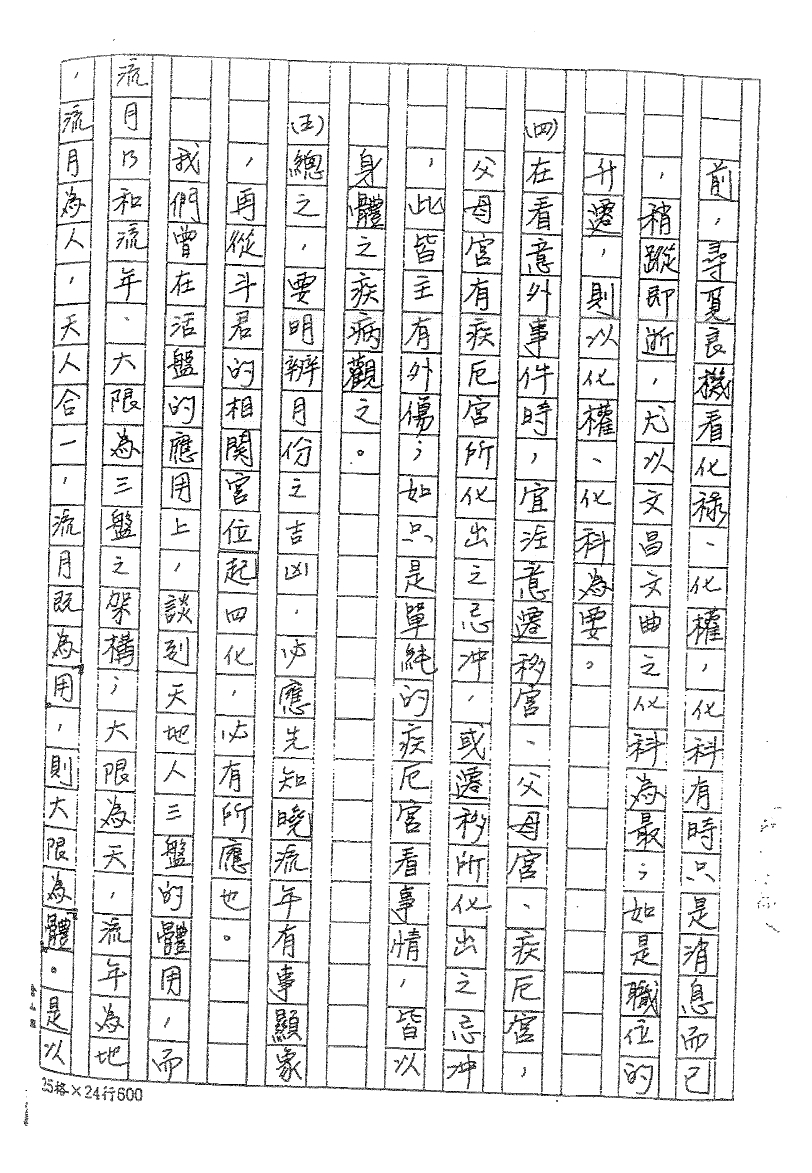 前，尋覓良機看化祿、化權，化科有時只是消息而已
，稍蹤即逝，尤以文昌文曲之化科為最；如是職位的
升遷，則以化權、化科為要。
(四)在看意外事件時，宜注意遷移宮、父母宮、疾厄宮，
父母宮有疾厄宮所化出之忌沖，或遷移所化出之忌沖
，此皆主有外傷；如只是單純的疾厄宮看事情，皆以
身體之疾病觀之。
(五)總之，要明辨月份之吉凶，必應先知曉流年有事顯象
，再從斗君的相關宮位起四化，必有所應也。
我們曾在活盤的應用上，談到天地人三盤的體用，而
流月乃和流年、大限為三盤之架構；大限為天，流年為地
，流月為人，天人合一，流月既為『用』，則大限為『體』。是以
25格×24行600